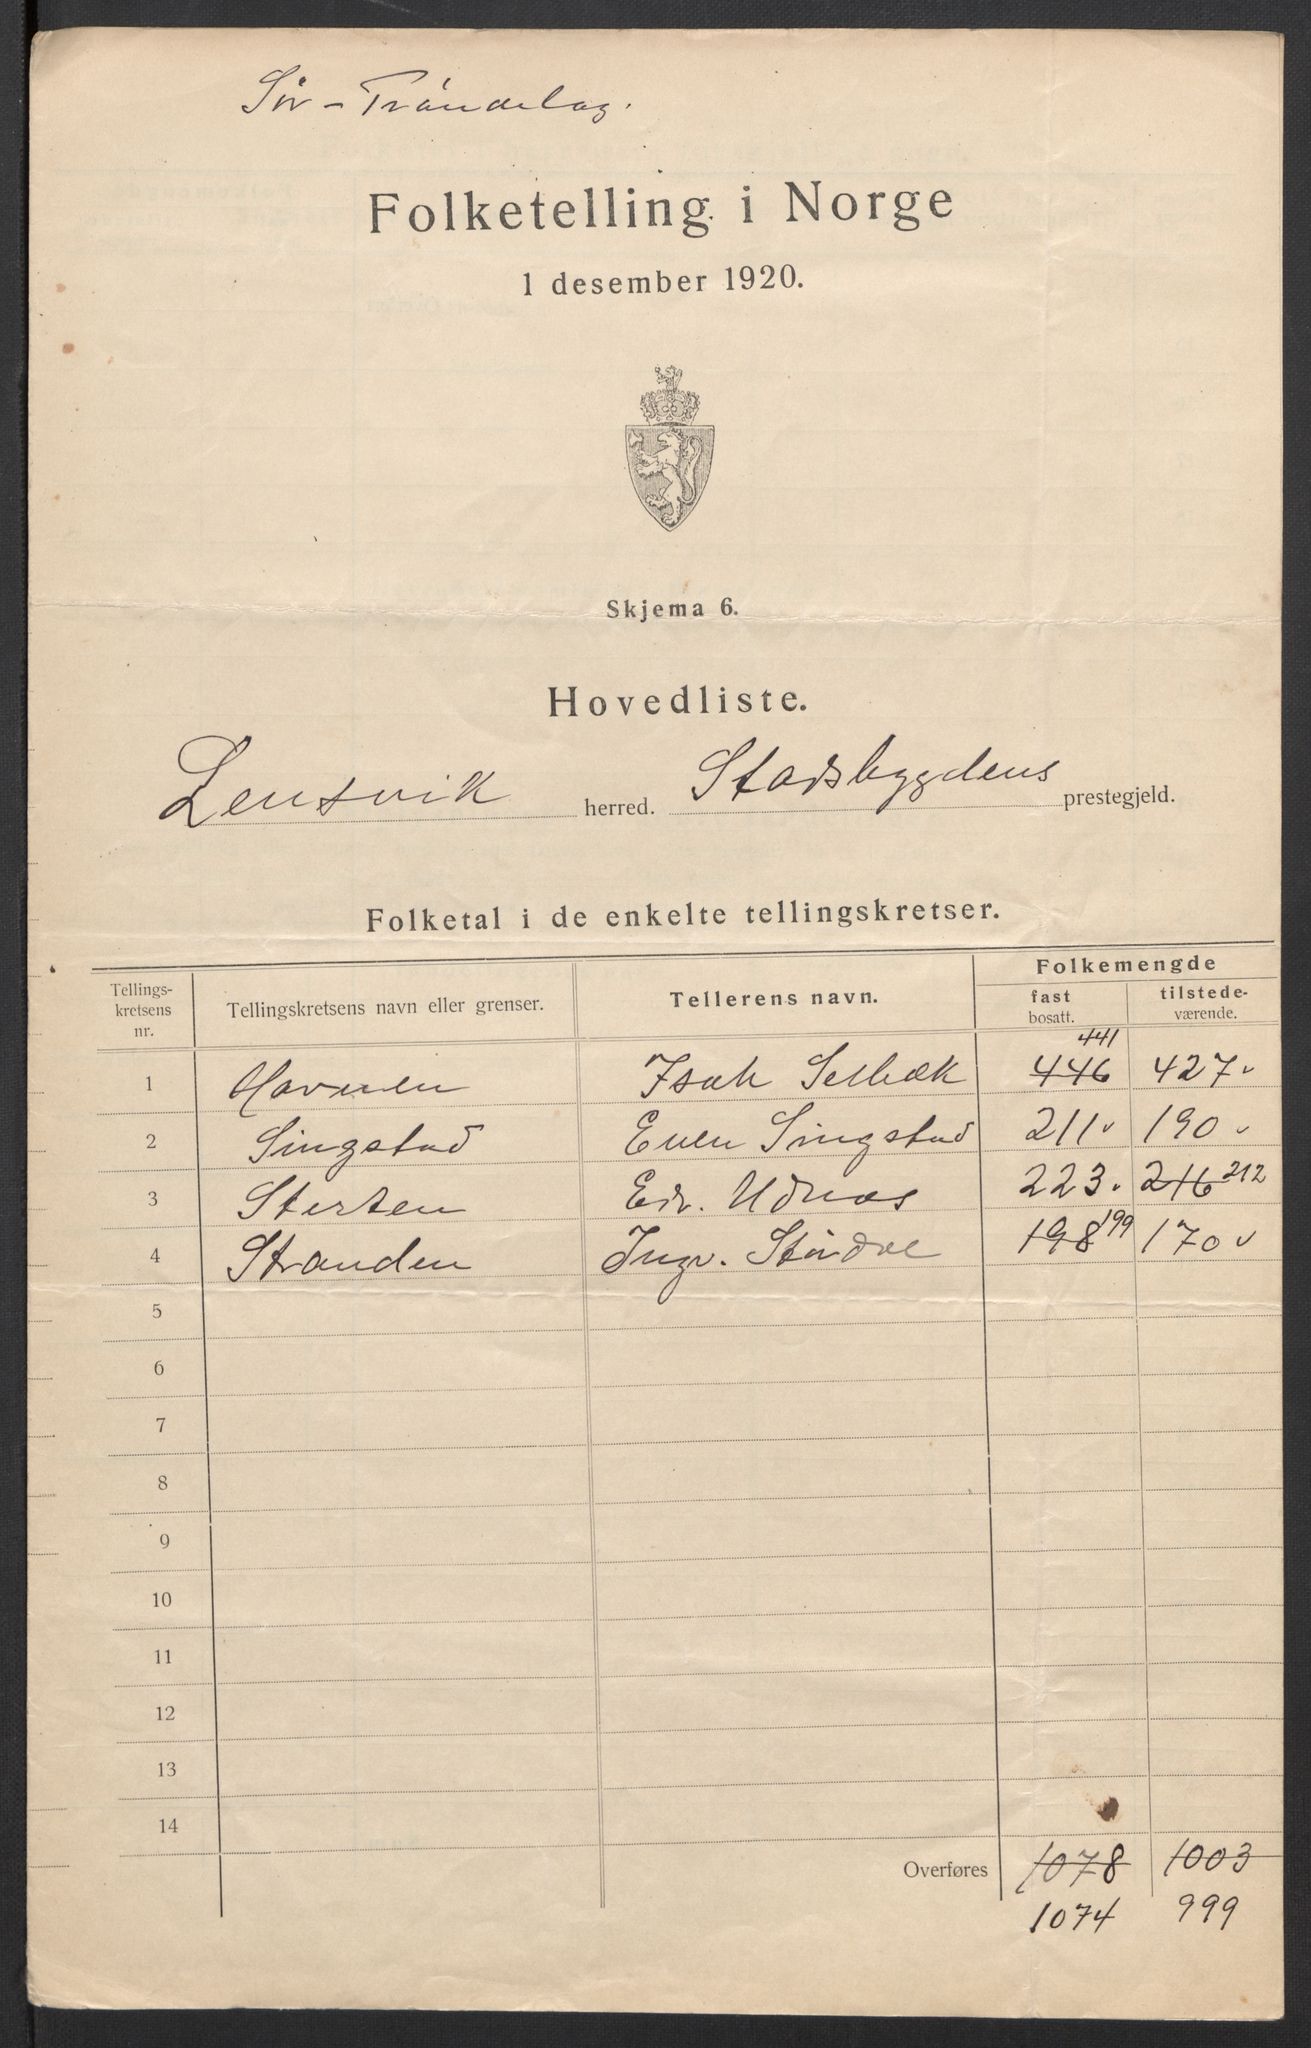 Sör-Tröndelag.
Folketelling i Norge
1 desember 1920.
Skjema 6.
Hovedliste.
Lensvik herred. Stadsbygdens prestegjeld.
Folketal i de enkelte tellingskretser.
Tellings-kretsens nr. Tellingskretsens navn eller grenser. Tellerens navn. Folkemengde
fast bosatt. tilstede-værende.
441
1 Havnen Isak Selbæk 446 427
2 Singstad Even Singstad 211 190
3 Stersen Edv. Udnæs 223 216 212
4 Stranden Ingv. Stördal 198 199 170
5
6
7
8
9
10
11
12
13
14
Overføres 1078 1003
1074 999